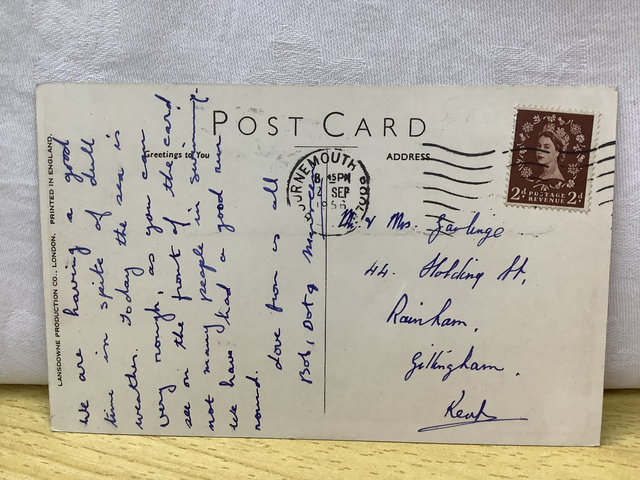 POST CARD
Greetings to You
ADDRESS
LANSDOWNE PRODUCTION CO., LONDON. PRINTED IN ENGLAND.
We are having a good
time in spite of dull
weather. Today the sea is
very rough, as you can
see on the front of the card
not many people in swimming.
We have had a good run
round.
Love from us all
Bob, Dot &
BOURNEMOUTH
8 15 PM
2 SEP
1956
2D POSTAGE 2D
REVENUE
Mr & Mrs.
44. Holding St,
Rainham,
Gillingham.
Kent